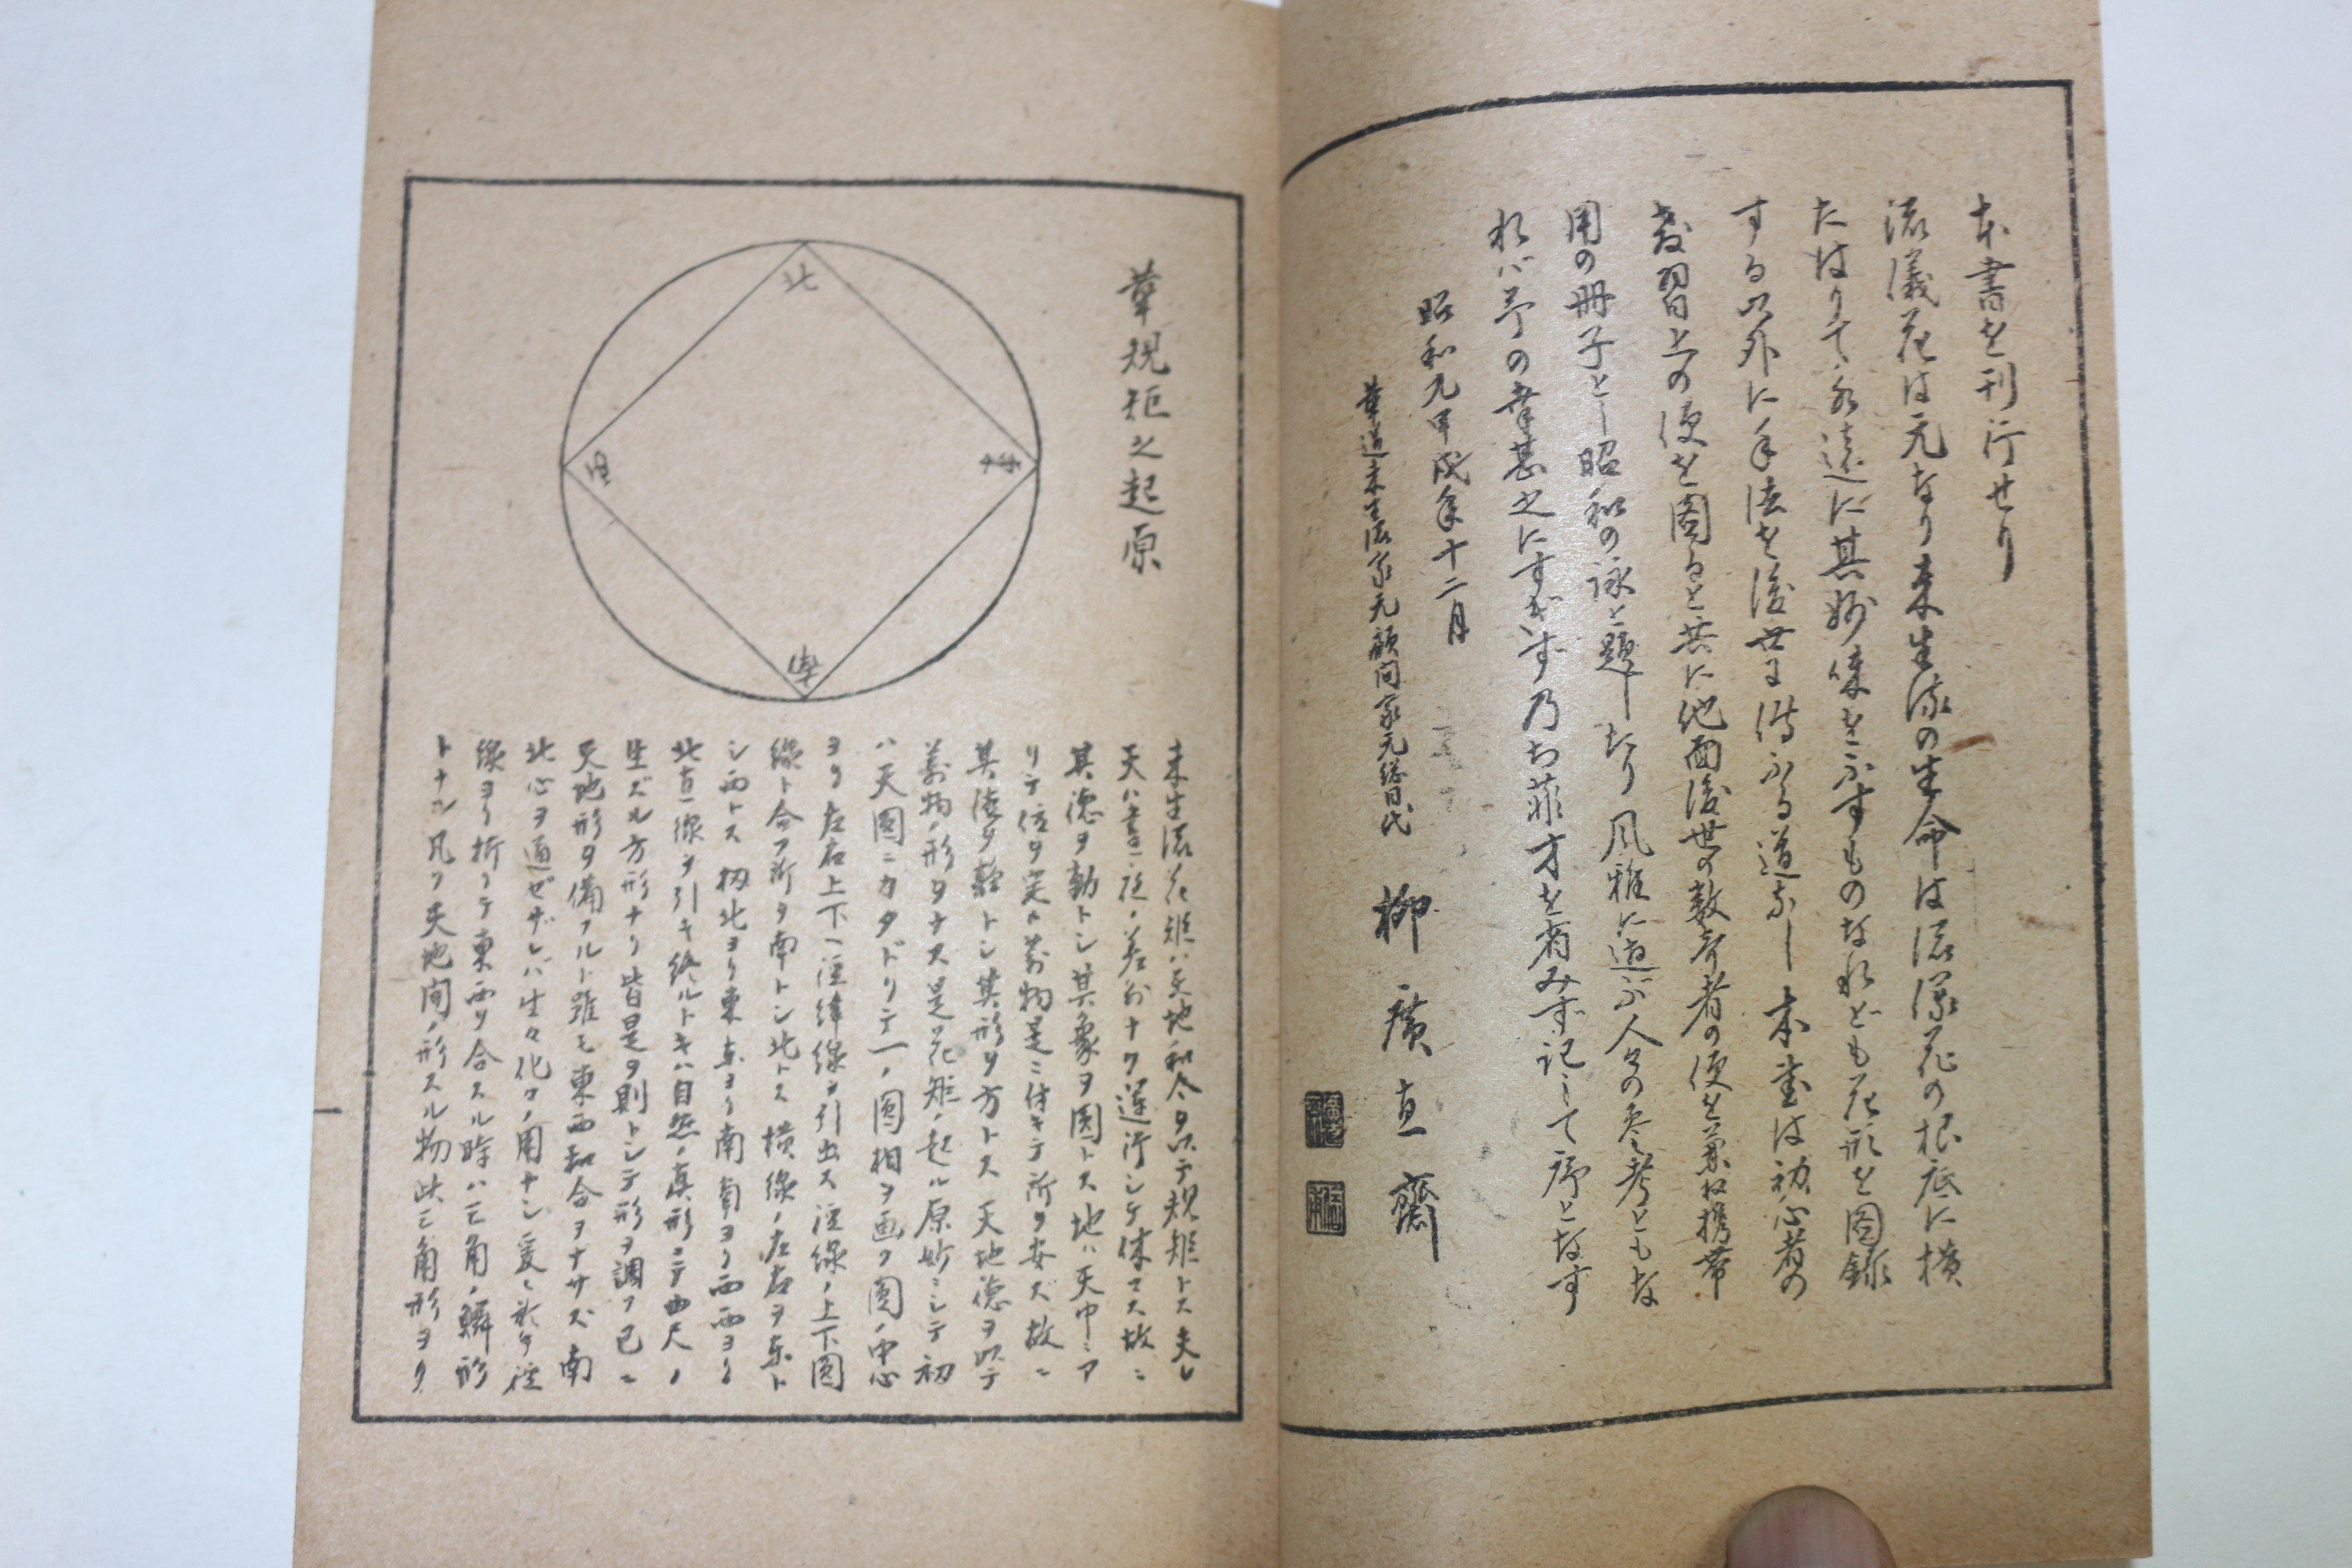 本書を刊行せり
流儀花は元なり未生流の生命は流儀花の根底に横
たはりて永遠に其妙味を示すものなれども花形を図録
する以外に手法を後世に伝ふる道なし本書は初心者の
教習上の便を図ると共に他面後世の数寄者の便を兼ね携帯
用の冊子とし昭和の詠と題したり風雅に遊ぶ人々の参考ともな
れバ予の幸甚之にすぎず乃ち菲才を省みず記して序となす
昭和九甲戌年十二月
華道未生流家元顧問家元総目代
柳廣直齋
華規矩之起原
北
東
西
南
未生流ノ花矩ハ天地和合ヲ以テ規矩トス夫レ
天ハ昼夜ノ差別ナク運行シテ休マス故ニ
其徳ヲ動トシ其象ヲ圓トス地ハ天中ニア
リテ位ヲ定メ萬物是ニ付キテ所ヲ安ズ故ニ
其徳ヲ静トシ其形ヲ方トス天地徳ヲ以テ
萬物ノ形ヲナス是花矩ノ起ル原妙ニシテ初
ハ天圓ニカタドリテ一ノ圓相ヲ画ク圓ノ中心
ヨリ左右上下ヘ経緯線ヲ引出ス経線ノ上下圓
線ト合フ所ヲ南トシ北トス横線ノ左右ヲ東ト
シ西トス扨北ヨリ東東ヨリ南南ヨリ西西ヨリ
北直線ヲ引キ終ルトキハ自然ノ真形ニテ曲尺ノ
生ズル方形ナリ皆是ヲ則トシテ形ヲ調フ已ニ
天地形ヲ備フルト雖モ東西和合ヲナサズ南
北心ヲ通ゼザレバ生々化々ノ用ナシ爰ニ於テ経
線ヨリ折リテ東西ヲ合スル時ハ三角ノ鱗形
トナル凡ソ天地間ノ形スル物此三角形ヨリ